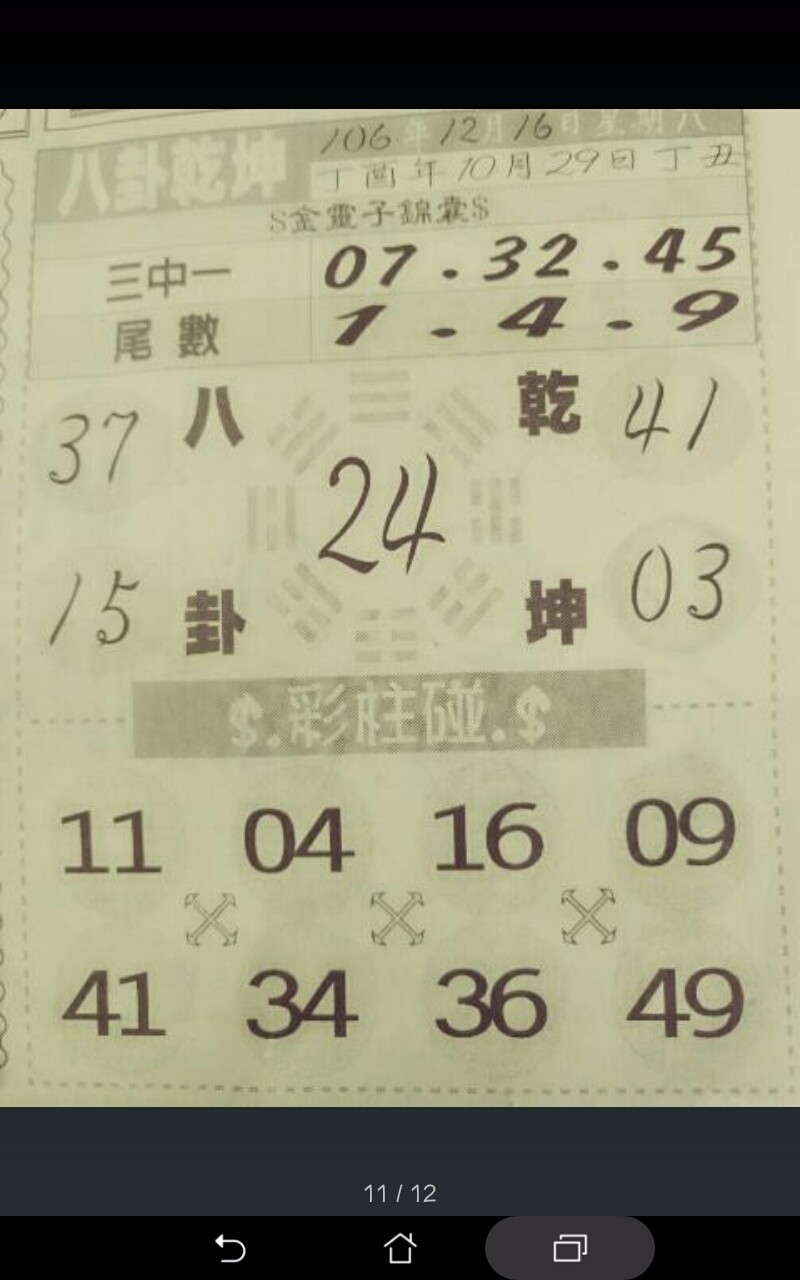 八卦乾坤
106年12月16日星期六
丁酉年10月29日丁丑
$金靈子錦囊$
三中一 07.32.45
尾數 1.4.9
37 八 乾 41
24
15 卦 坤 03
$.彩柱碰.$
11 04 16 09
41 34 36 49
11 / 12